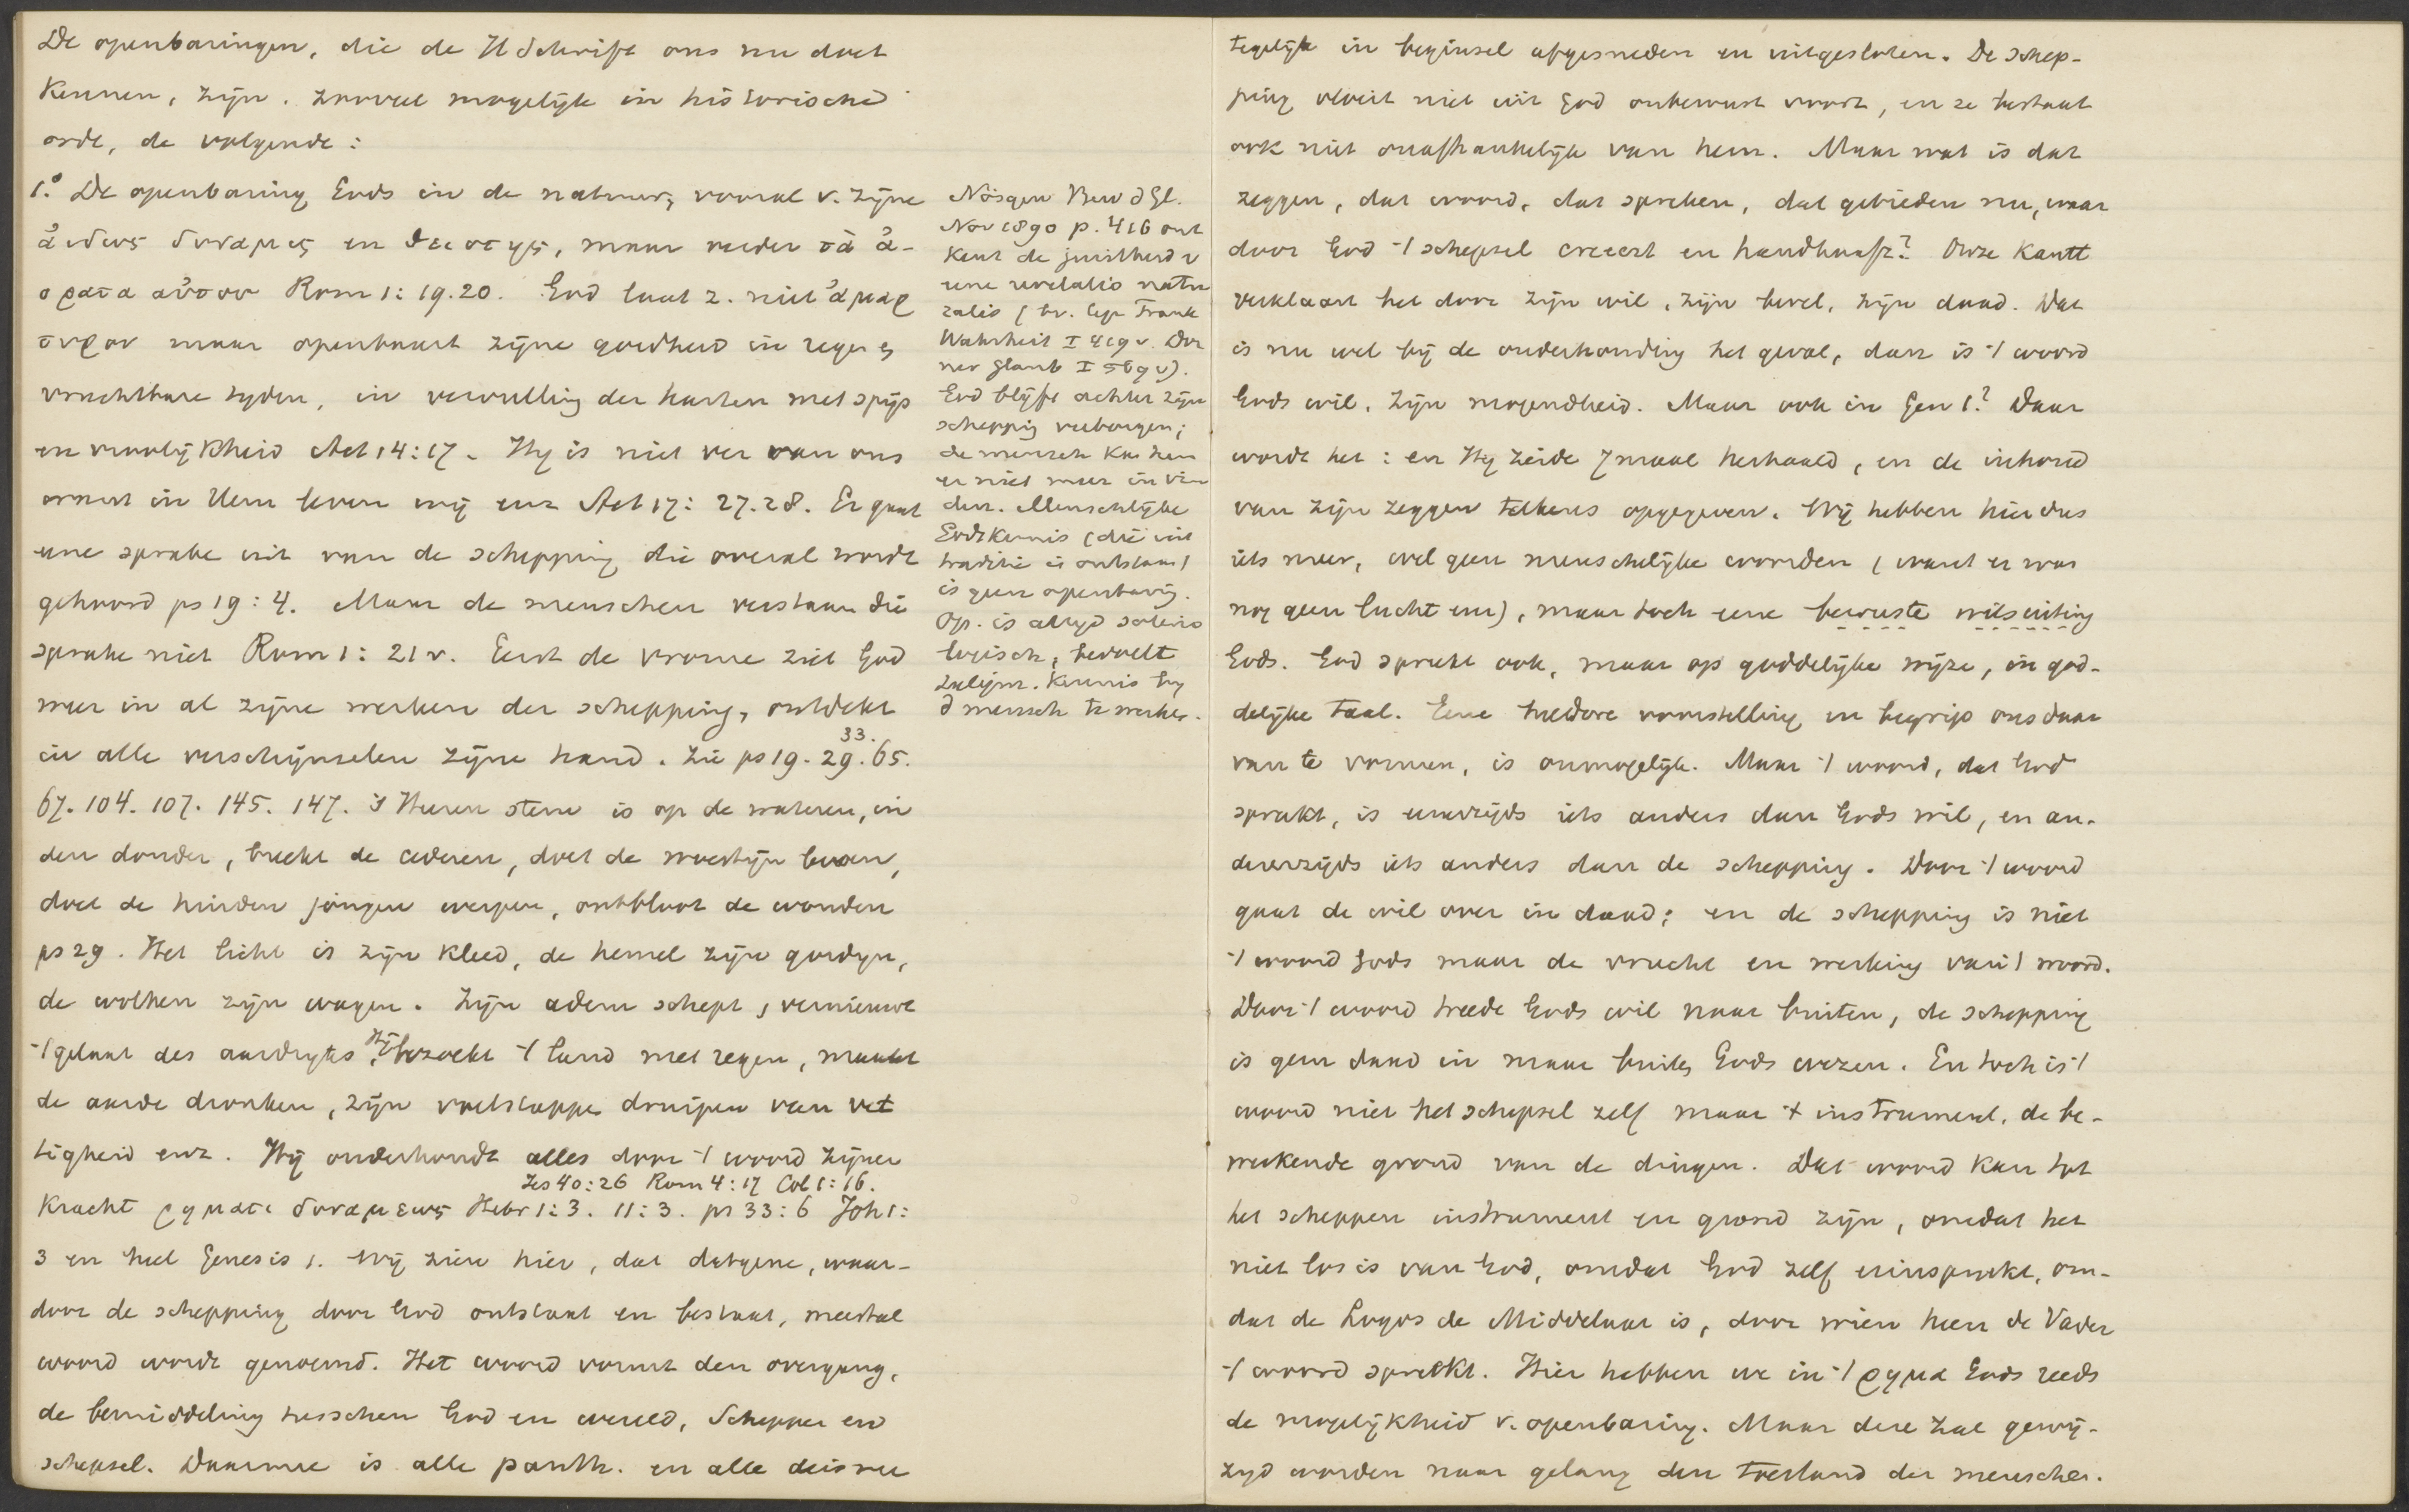 De openbaringen, die de H Schrift ons nu doet
kennen, zijn, zooveel mogelijk in historische
orde, de volgende:
1.° De openbaring Gods in de natuur, vooral v. zijne
ἀϊδιος δυναμις en θειοτης, maar verder τὰ ἀ-
ορατα αὐτου Rom 1:19.20. God laat z. niet ἀμαρ
τυρον maar openbaart zijne goedheid in regen en
vruchtbare tyden, in vervulling der harten met spijs
en vroolijkheid Act 14:17. Hy is niet ver van ons
want in Hem leven wij enz Act 17:27.28. Er gaat
eene sprake uit van de schepping die overal wordt
gehoord ps 19:4. Maar de menschen verstaan die
sprake niet Rom 1:21 v. Eerst de vrome ziet God
weer in al zijne werken der schepping, ontdekt
in alle verschijnselen zijne hand. Zie ps 19. 29. 33. 65.
67. 104. 107. 145. 147. 's Heeren stem is op de wateren, in
den donder, breekt de cederen, doet de woestijn beven,
doet de hinden jongen werpen, ontbloot de wouden
ps 29. Het licht is zijn kleed, de hemel zijn gordyn,
de wolken zijn wagen. Zijn adem schept, vernieuwt
't gelaat des aardryks, Hij bezoekt 't land met regen, maakt
de aarde dronken, zijn voetstappen druipen van vet
tigheid enz. Hij onderhoudt alles door 't woord zijner
Jes 40:26 Rom 4:17 Col 1:16.
kracht ρηματι δυναμεως Hebr 1:3. 11:3. ps 33:6 Joh 1:
3 en heel Genesis 1. Wij zien hier, dat datgene, waar-
door de schepping door God ontstaat en bestaat, meestal
woord wordt genoemd. Het woord vormt den overgang,
de bemiddeling tusschen God en wereld, Schepper en
schepsel. Daarmee is alle panth. en alle deisme
Nösgen Bew d Gl.
Nov 1890 p. 416 ont
kent de juistheid v
eene revelatio natu
ralis (bv. bij Frank
Wahrheit I 419 v. Dor
ner Glaub I 569 v).
God blijft achter zijn
schepping verborgen;
de mensch kan hem
er niet meer in vin
den. Menschelijke
Godskennis (die uit
traditie is ontstaan)
is geen openbaring.
Op. is altyd soterio
logisch, bedoelt
zaligm. kennis by
d mensch te werken.
tegelijk in beginsel afgesneden en uitgesloten. De schep-
ping vloeit niet uit God onbewust voort, en ze bestaat
ook niet onafhankelijk van hem. Maar wat is dat
zeggen, dat woord, dat spreken, dat gebieden nu, waar
door God 't schepsel creëert en handhaaft? Onze Kantt
verklaart het door zijn wil, zijn bevel, zijn daad. Dat
is nu wel bij de onderhouding het geval, dan is 't woord
Gods wil, zijn mogendheid. Maar ook in Gen 1? Daar
wordt het: en Hij zeide 7 maal herhaald, en de inhoud
van zijn zeggen telkens opgegeven. Wij hebben hier dus
iets meer, wel geen menschelijke woorden (want er was
nog geen lucht enz), maar toch eene bewuste wilsuiting
Gods. God spreekt ook, maar op goddelijke wijze, in god-
delijke taal. Eene heldere voorstelling en begrip ons daar
van te vormen, is onmogelijk. Maar 't woord, dat God
spreekt, is eenerzijds iets anders dan Gods wil, en an-
dererzijds iets anders dan de schepping. Door 't woord
gaat de wil over in daad; en de schepping is niet
't woord Gods maar de vrucht en werking van 't woord.
Door 't woord treedt Gods wil naar buiten, de schepping
is geen daad in maar buiten Gods wezen. En toch is 't
woord niet het schepsel zelf maar 't instrument, de be-
werkende grond van de dingen. Dat woord kan tot
het scheppen instrument en grond zijn, omdat het
niet los is van God, omdat God zelf erin spreekt, om-
dat de Logos de Middelaar is, door wien heen de Vader
't woord spreekt. Hier hebben we in 't ρημα Gods reeds
de mogelijkheid v. openbaring. Maar deze zal gewij-
zigd worden naar gelang den toestand der menschen.